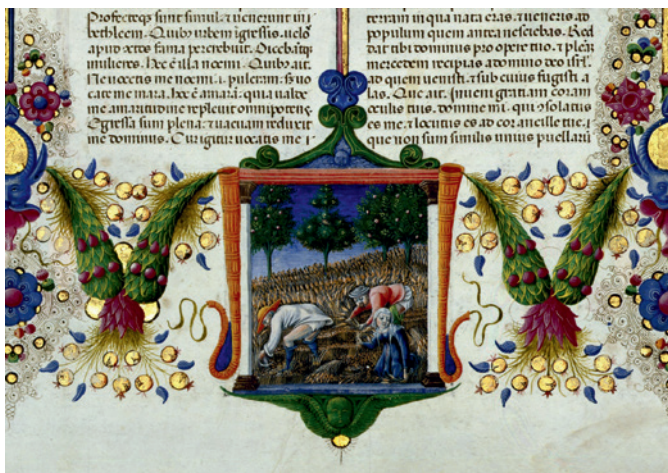 Profecteq; sunt simul. ⁊ uenerunt in
bethleem. Quib; urbem igressis. uelo
apud cctos fama percrebuit. Dicebatq;
mulieres. hec ē illa noemi. Quib; ait.
Ne uocetis me noemi. i. pulcram. s; uo
cate me mara. hoc ē amarā. quia ualde
me amaritudine repleuit omnipotens.
Egressa sum plena. ⁊ uacuam reduxit
me dominus. Cur igitur uocatis me
terram in qua nata eras. ⁊ ueneris ad
populum quem antea nesciebas. Red
dat tibi dominus pro opere tuo. ⁊ plenā
mercedem recipias a domino deo isrl.
ad quem uenisti. ⁊ sub cuius fugisti a
las. Que ait. Inueni gratiam coram
oculis tuis. domine mi. qui 9solatus
es me. ⁊ locutus es ad cor ancille tue.
que non sum similis unius puellarū